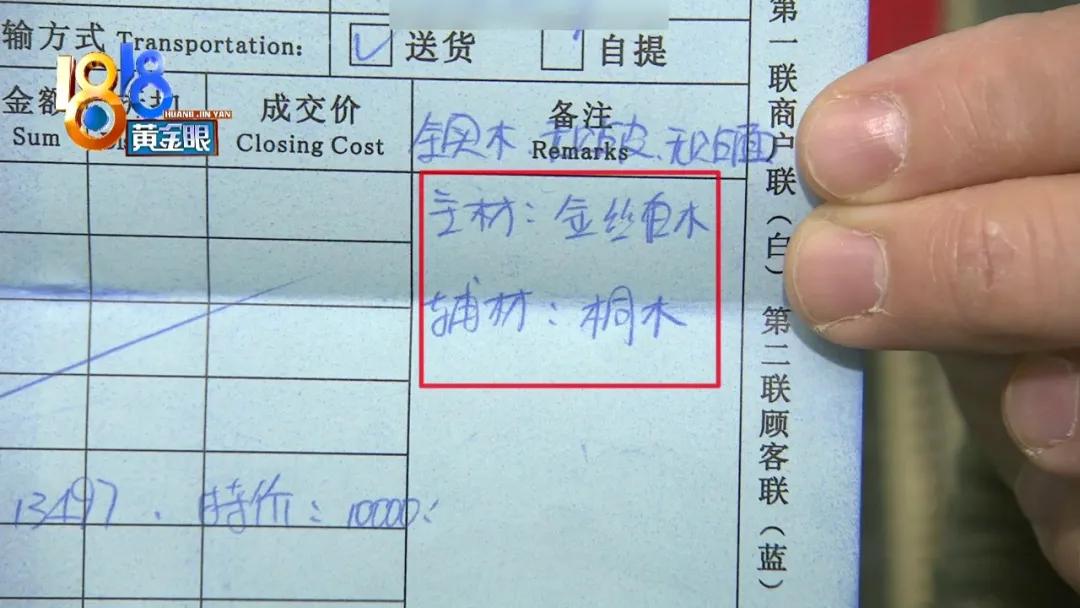 输方式 Transportation: 送货 自提
1818
HUANG JIN YAN
黄金眼
金额
Sum
成交价
Closing Cost
备注
Remarks
全实木 无贴皮、无贴面
主材：金丝白木
辅材：桐木
13497. 特价：10000:
第一联商户联（白） 第二联顾客联（蓝）